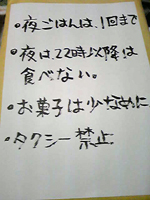 ・夜ごはんは、1回まで
・夜は、22時以降は
食べない。
・お菓子は少なめに
・タクシー禁止